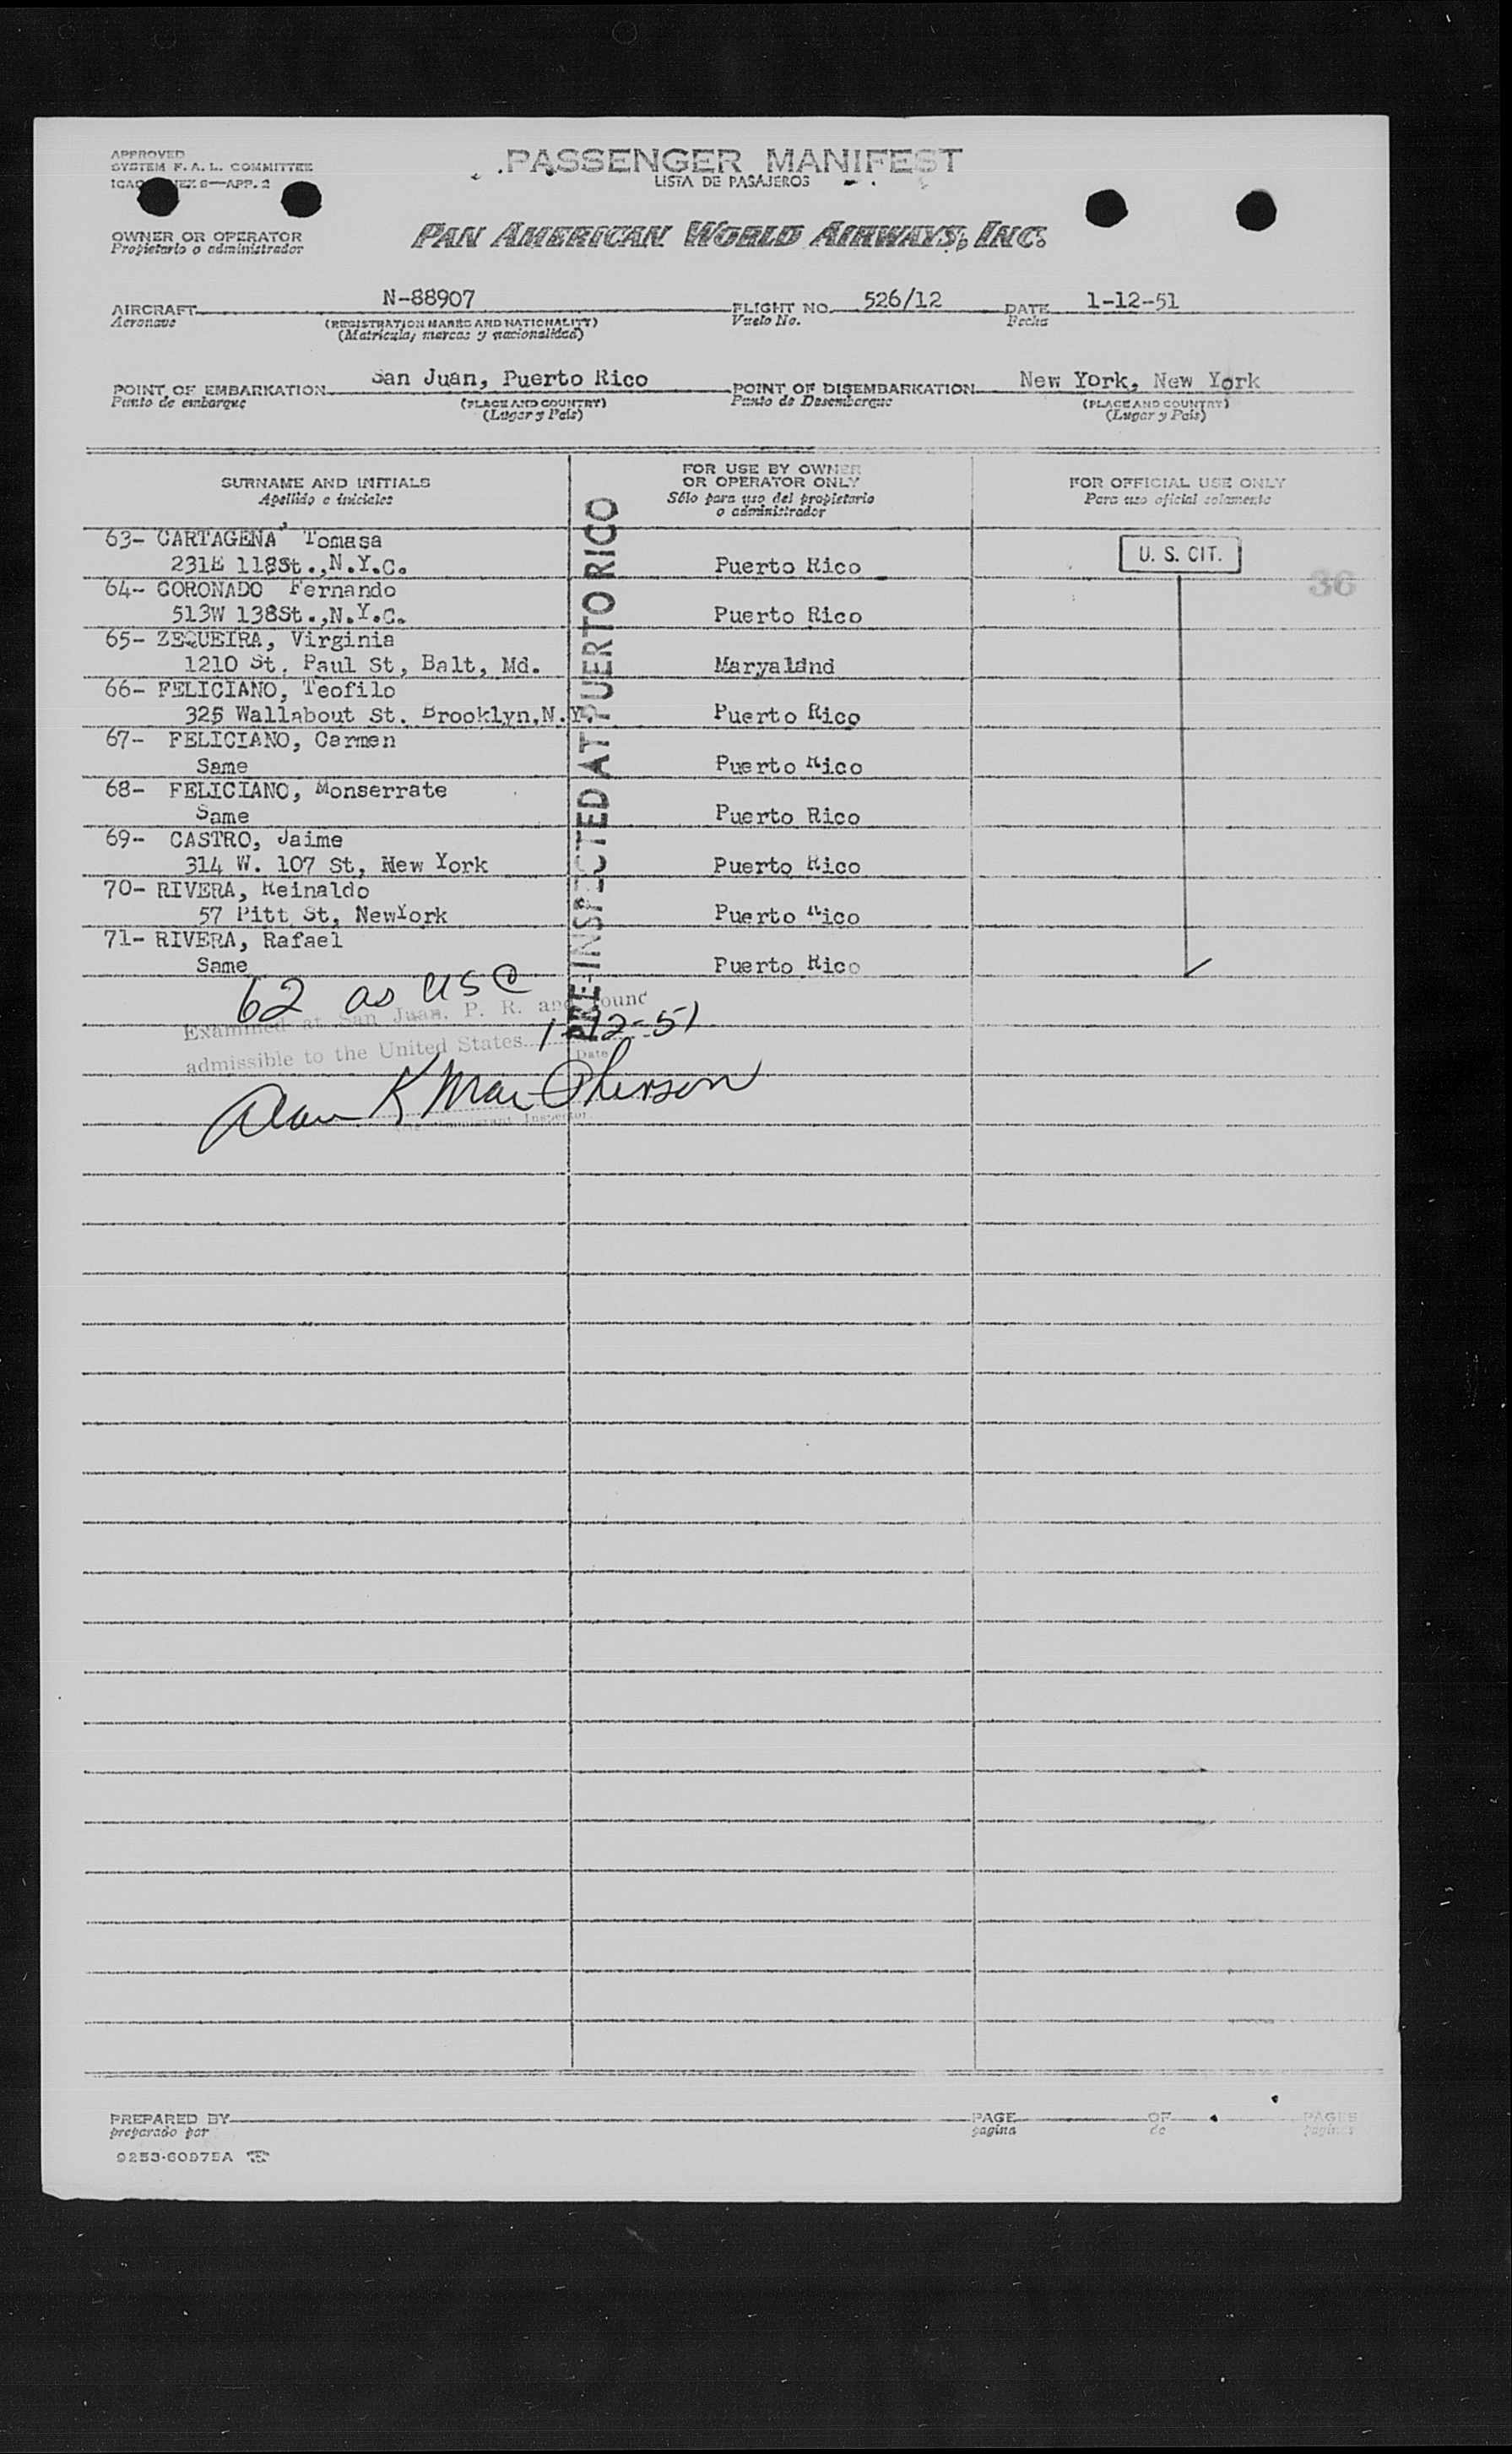 APPROVED
SYSTEM F. A. L. COMMITTEE
PASSENGER MANIFEST
LISTA DE PASAJEROS
OWNER OR OPERATOR
Propietario o administrador
PAN AMERICAN WORLD AIRWAYS, INC.
AIRCRAFT N-88907 FLIGHT NO. 526/12 DATE 1-12-51
Aeronave (REGISTRATION MARKS AND NATIONALITY) Vuelo No. Fecha
(Matricula, marcas y nacionalidad)
POINT OF EMBARKATION San Juan, Puerto Rico POINT OF DISEMBARKATION New York, New York
Punto de embarque (PLACE AND COUNTRY) Punto de Desembarque (PLACE AND COUNTRY)
(Lugar y Pais) (Lugar y Pais)
SURNAME AND INITIALS
Apellido e iniciales
FOR USE BY OWNER
OR OPERATOR ONLY
Sólo para uso del propietario
o administrador
FOR OFFICIAL USE ONLY
Para uso oficial solamente
63- CARTAGENA, Tomasa
231E 118St.,N.Y.C. Puerto Rico U. S. CIT.
36
64- CORONADO Fernando
513W 138St.,N.Y.C. Puerto Rico
65- ZEQUEIRA, Virginia
1210 St. Paul St, Balt, Md. Maryalând
66- FELICIANO, Teofilo
325 Wallabout St. Brooklyn,N.Y. Puerto Rico
67- FELICIANO, Carmen
Same Puerto Rico
68- FELICIANO, Monserrate
Same Puerto Rico
69- CASTRO, Jaime
314 W. 107 St, New York Puerto Rico
70- RIVERA, Reinaldo
57 Pitt St, NewYork Puerto Rico
71- RIVERA, Rafael
Same Puerto Rico
PRE-INSPECTED AT PUERTO RICO
62 as USC
Examined at San Juan, P. R. and found
admissible to the United States 1-12-51
Date
Alan K MacPherson
Immigrant Inspector
PREPARED BY PAGE OF PAGES
preparado por pagina de paginas
9253-60975A